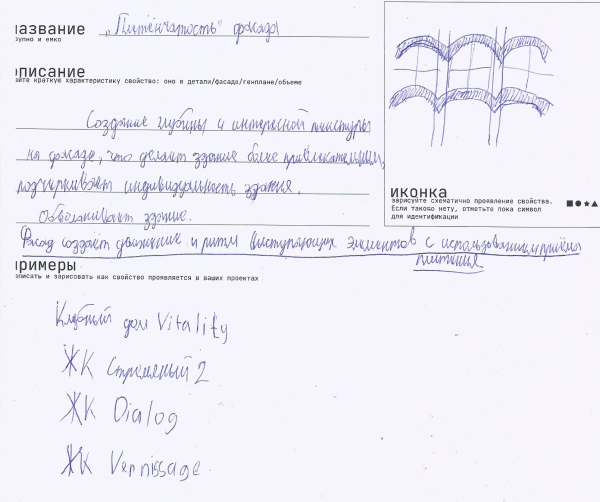 название
рупно и емко
„Плитёнчатость" фасада
описание
айте краткую характеристику свойство: оно в детали/фасаде/генплане/объеме
Создание глубины и интересной текстуры
на фасаде, что делает здание более привлекательным,
подчёркивает индивидуальность здания.
Обволакивает здание.
Фасад создаёт движение и ритм выступающих элементов с использованием приёма
плетения
иконка
зарисуйте схематично проявление свойства.
Если такого нету, отметьте пока символ
для идентификации
■●★▲
примеры
описать и зарисовать как свойство проявляется в ваших проектах
Клубный дом Vitality
ЖК Стремянный 2
ЖК Dialog
ЖК Vernissage